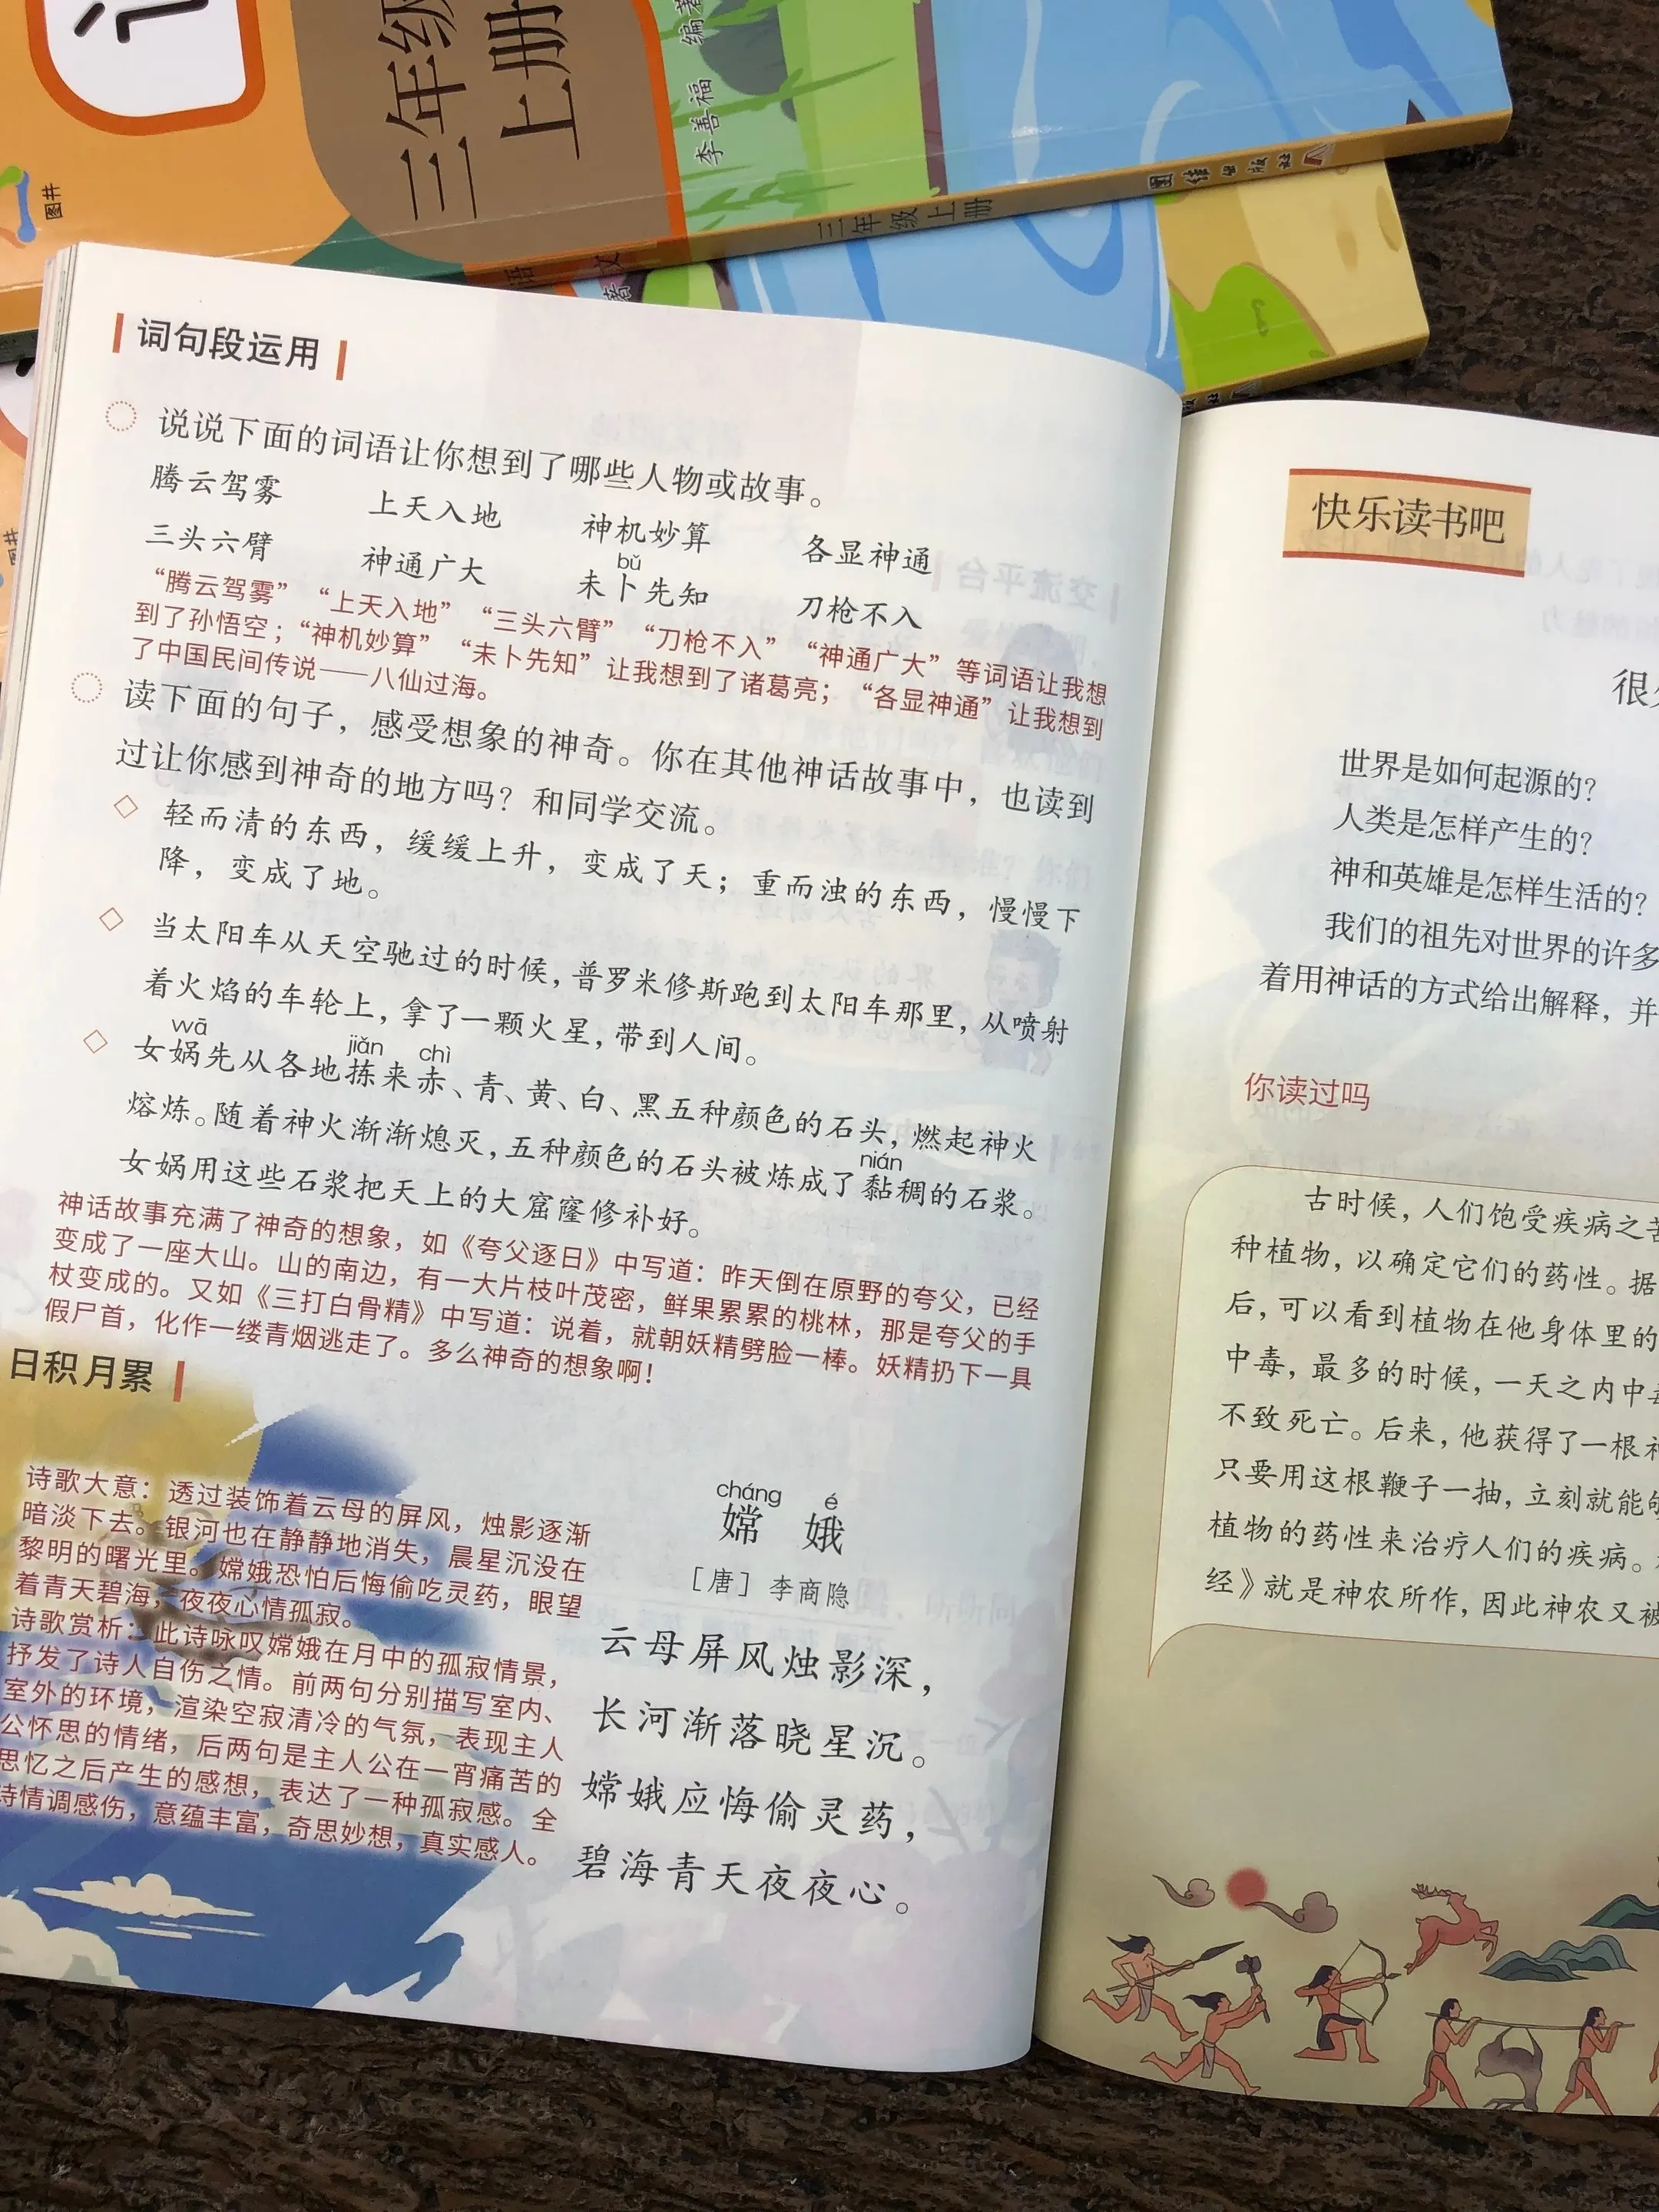 三年级
上册
李善福 编著
图井
三年级上册
团结出版社
词句段运用
说说下面的词语让你想到了哪些人物或故事。
腾云驾雾 上天入地 神机妙算 各显神通
bǔ
三头六臂 神通广大 未卜先知 刀枪不入
“腾云驾雾” “上天入地” “三头六臂” “刀枪不入” “神通广大”等词语让我想
到了孙悟空；“神机妙算” “未卜先知”让我想到了诸葛亮； “各显神通”让我想到
了中国民间传说——八仙过海。
读下面的句子，感受想象的神奇。你在其他神话故事中，也读到
过让你感到神奇的地方吗？和同学交流。
轻而清的东西，缓缓上升，变成了天；重而浊的东西，慢慢下
降，变成了地。
当太阳车从天空驰过的时候，普罗米修斯跑到太阳车那里，从喷射
着火焰的车轮上，拿了一颗火星，带到人间。
wā jiǎn chì
女娲先从各地拣来赤、青、黄、白、黑五种颜色的石头，燃起神火
熔炼。随着神火渐渐熄灭，五种颜色的石头被炼成了黏稠的石浆。
nián
女娲用这些石浆把天上的大窟窿修补好。
神话故事充满了神奇的想象，如《夸父逐日》中写道：昨天倒在原野的夸父，已经
变成了一座大山。山的南边，有一大片枝叶茂密，鲜果累累的桃林，那是夸父的手
杖变成的。又如《三打白骨精》中写道：说着，就朝妖精劈脸一棒。妖精扔下一具
假尸首，化作一缕青烟逃走了。多么神奇的想象啊！
日积月累
诗歌大意：透过装饰着云母的屏风，烛影逐渐
暗淡下去。银河也在静静地消失，晨星沉没在
黎明的曙光里。嫦娥恐怕后悔偷吃灵药，眼望
着青天碧海，夜夜心情孤寂。
诗歌赏析：此诗咏叹嫦娥在月中的孤寂情景，
抒发了诗人自伤之情。前两句分别描写室内、
室外的环境，渲染空寂清冷的气氛，表现主人
公怀思的情绪，后两句是主人公在一宵痛苦的
思忆之后产生的感想，表达了一种孤寂感。全
诗情调感伤，意蕴丰富，奇思妙想，真实感人。
cháng é
嫦 娥
［唐］李商隐
云母屏风烛影深，
长河渐落晓星沉。
嫦娥应悔偷灵药，
碧海青天夜夜心。
快乐读书吧
很
世界是如何起源的？
人类是怎样产生的？
神和英雄是怎样生活的？
我们的祖先对世界的许多
着用神话的方式给出解释，并
你读过吗
古时候，人们饱受疾病之苦
种植物，以确定它们的药性。据
后，可以看到植物在他身体里的
中毒，最多的时候，一天之内中毒
不致死亡。后来，他获得了一根神
只要用这根鞭子一抽，立刻就能够
植物的药性来治疗人们的疾病。
经》就是神农所作，因此神农又被